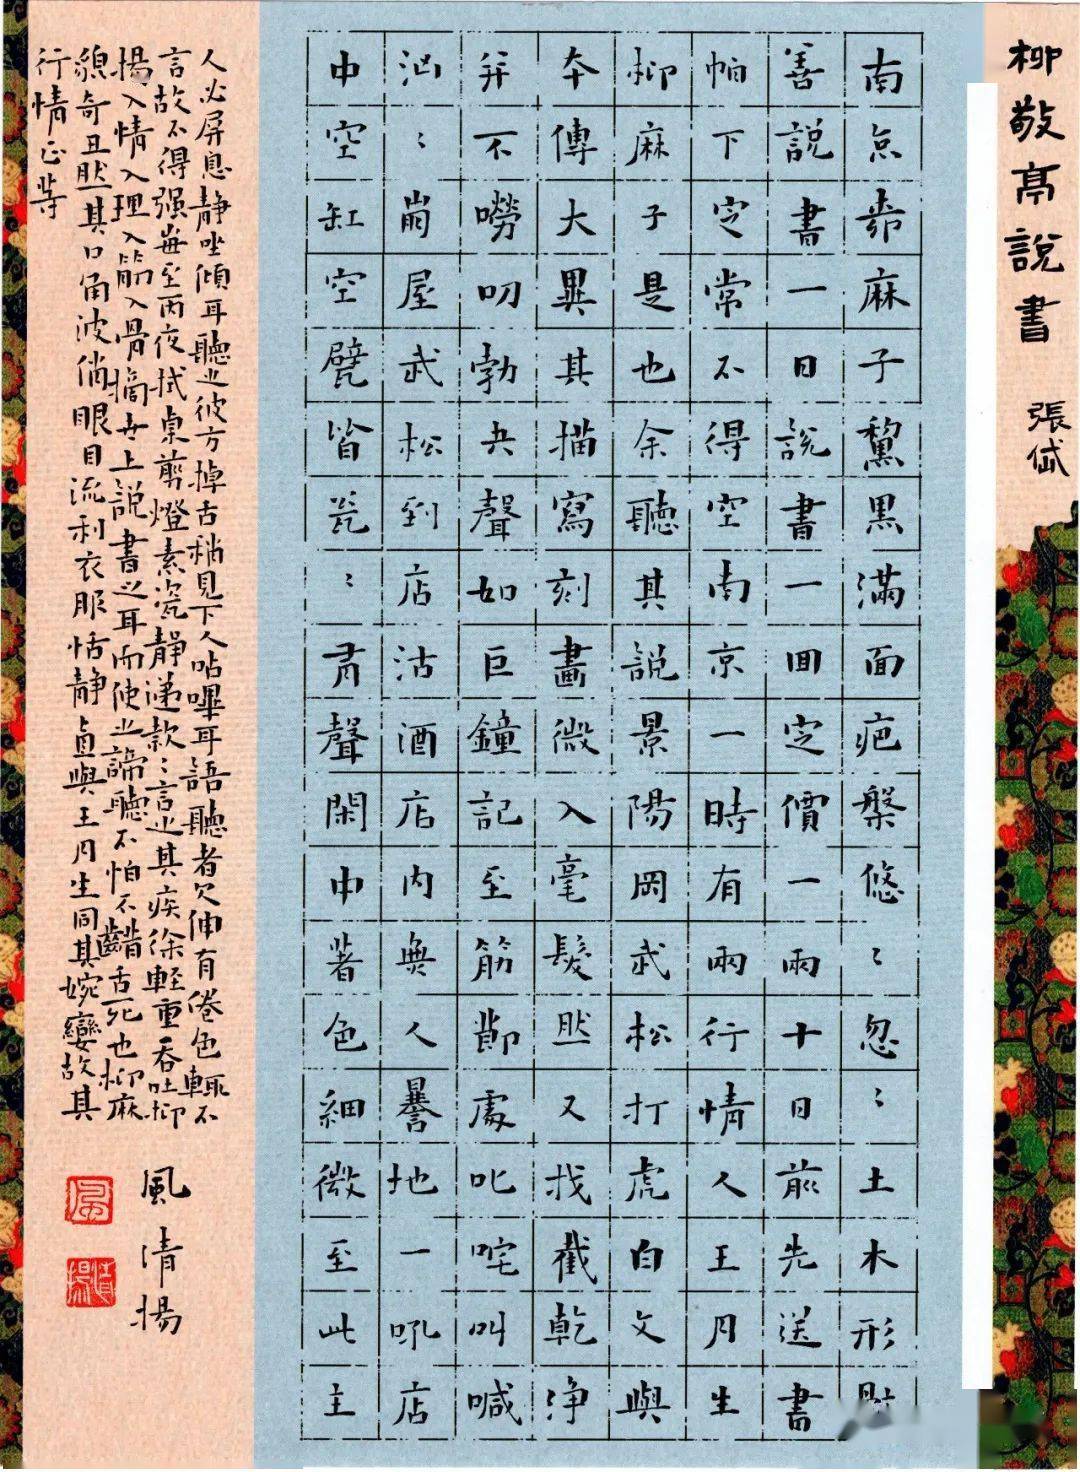 柳敬亭說書 張岱
南京柳麻子黧黑滿面疤槃悠〻忽〻土木形
善說書一日說書一回定價一兩十日前先送書
帕下定常不得空南京一時有兩行情人王月生
柳麻子是也余聽其說景陽岡武松打虎白文與
本傳大異其描寫刻畫微入毫髮然又找截乾淨
并不嘮叨勃夬聲如巨鐘記至筋節處叱咤叫喊
洶〻崩屋武松到店沽酒店內無人謈地一吼店
中空缸空甓皆瓮〻聲閑中著色細微至此主
人必屏息靜坐傾耳聽之彼方掉舌稍見下人呫嗶耳語聽者欠伸有倦色輒不
言故不得强每至丙夜拭桌剪燈素瓷靜遞款〻言之其疾徐輕重吞吐抑
揚入情入理入筋入骨摘世上說書之耳而使之諦聽不怕不齰舌死也柳麻
貌奇丑然其口角波俏眼目流利衣服恬靜直與王月生同其婉孌故其
行情正等
風清揚
風
清揚